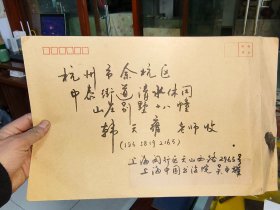 杭州市余杭区
中泰街道清水休闲
山庄别墅十八幢
韩天雍老师收
上海闵行区天山西路2968号
上海中国书法院